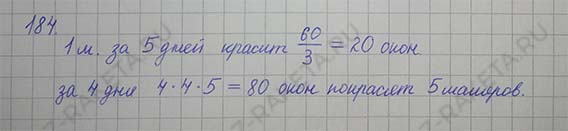 184.
1 м. за 5 дней красит 60/3 = 20 окон
за 4 дня 4·4·5 = 80 окон покрасят 5 маляров.
Z-RAKETA.RU